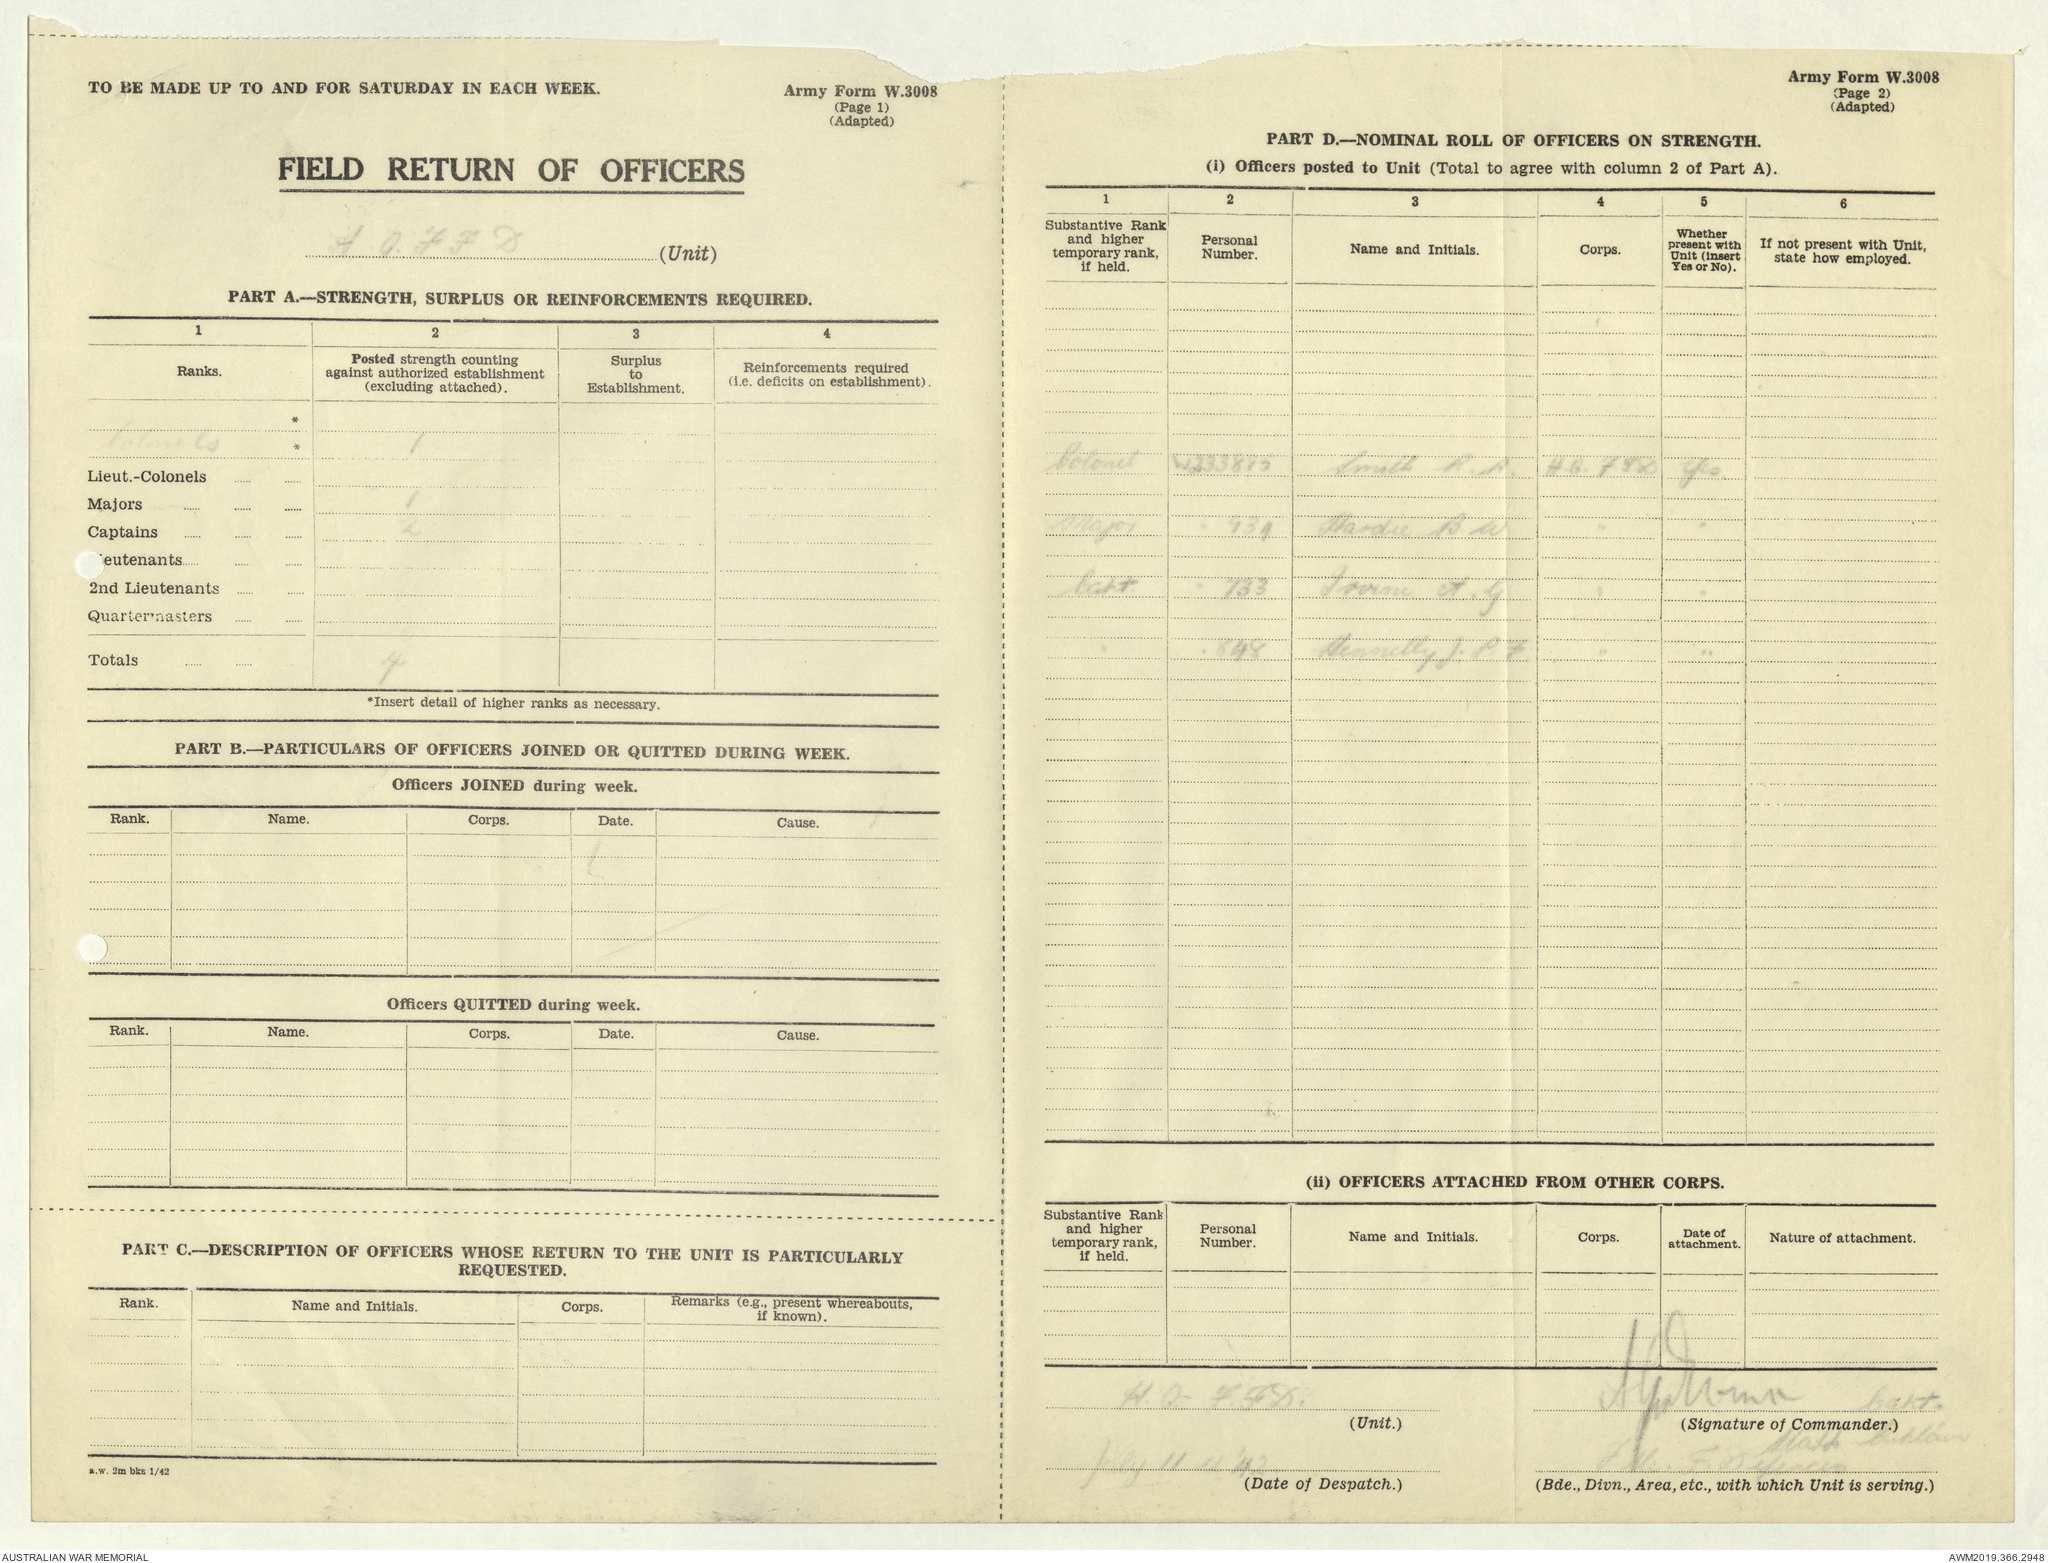 TO BE MADE UP TO AND FOR SATURDAY IN EACH WEEK.
Army Form W.3008
(Page 1)
(Adapted)
FIELD RETURN OF OFFICERS
H Q. F F D (Unit)
PART A.—STRENGTH, SURPLUS OR REINFORCEMENTS REQUIRED.
1 2 3 4
Ranks. Posted strength counting against authorized establishment (excluding attached). Surplus to Establishment. Reinforcements required (i.e. deficits on establishment).
*
Colonels * 1
Lieut.-Colonels
Majors 1
Captains 2
ieutenants
2nd Lieutenants
Quartermasters
Totals 4
*Insert detail of higher ranks as necessary.
PART B.—PARTICULARS OF OFFICERS JOINED OR QUITTED DURING WEEK.
Officers JOINED during week.
Rank. Name. Corps. Date. Cause.
Officers QUITTED during week.
Rank. Name. Corps. Date. Cause.
PART C.—DESCRIPTION OF OFFICERS WHOSE RETURN TO THE UNIT IS PARTICULARLY
REQUESTED.
Rank. Name and Initials. Corps. Remarks (e.g., present whereabouts, if known).
R.W. 2m bks 1/42
Army Form W.3008
(Page 2)
(Adapted)
PART D.—NOMINAL ROLL OF OFFICERS ON STRENGTH.
(i) Officers posted to Unit (Total to agree with column 2 of Part A).
1 2 3 4 5 6
Substantive Rank and higher temporary rank, if held. Personal Number. Name and Initials. Corps. Whether present with Unit (insert Yes or No). If not present with Unit, state how employed.
Colonel Smith R. A. H.Q. F F D Yes
Major " Hardie B W " "
Capt " 733 Irvine A. G " "
" " 648 Hennelly J. P. F. " "
(ii) OFFICERS ATTACHED FROM OTHER CORPS.
Substantive Rank and higher temporary rank, if held. Personal Number. Name and Initials. Corps. Date of attachment. Nature of attachment.
H Q F.F.D. Capt.
(Unit.) (Signature of Commander.)
Staff Captain
July 11 '42
(Date of Despatch.) (Bde., Divn., Area, etc., with which Unit is serving.)
AUSTRALIAN WAR MEMORIAL
AWM2019.366.2948